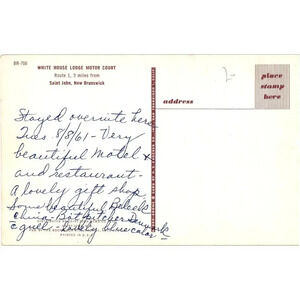 BR-700
WHITE HOUSE LODGE MOTOR COURT
Route 1, 3 miles from
Saint John, New Brunswick
2-
place
stamp
here
address
Stayed overnite here
Tues. 8/8/61 - Very
beautiful Motel &
and restaurant -
a lovely gift shop
Some beautiful
China - Bot pitcher Denmark
- lovely blue color
PRINTED IN U.S.A.